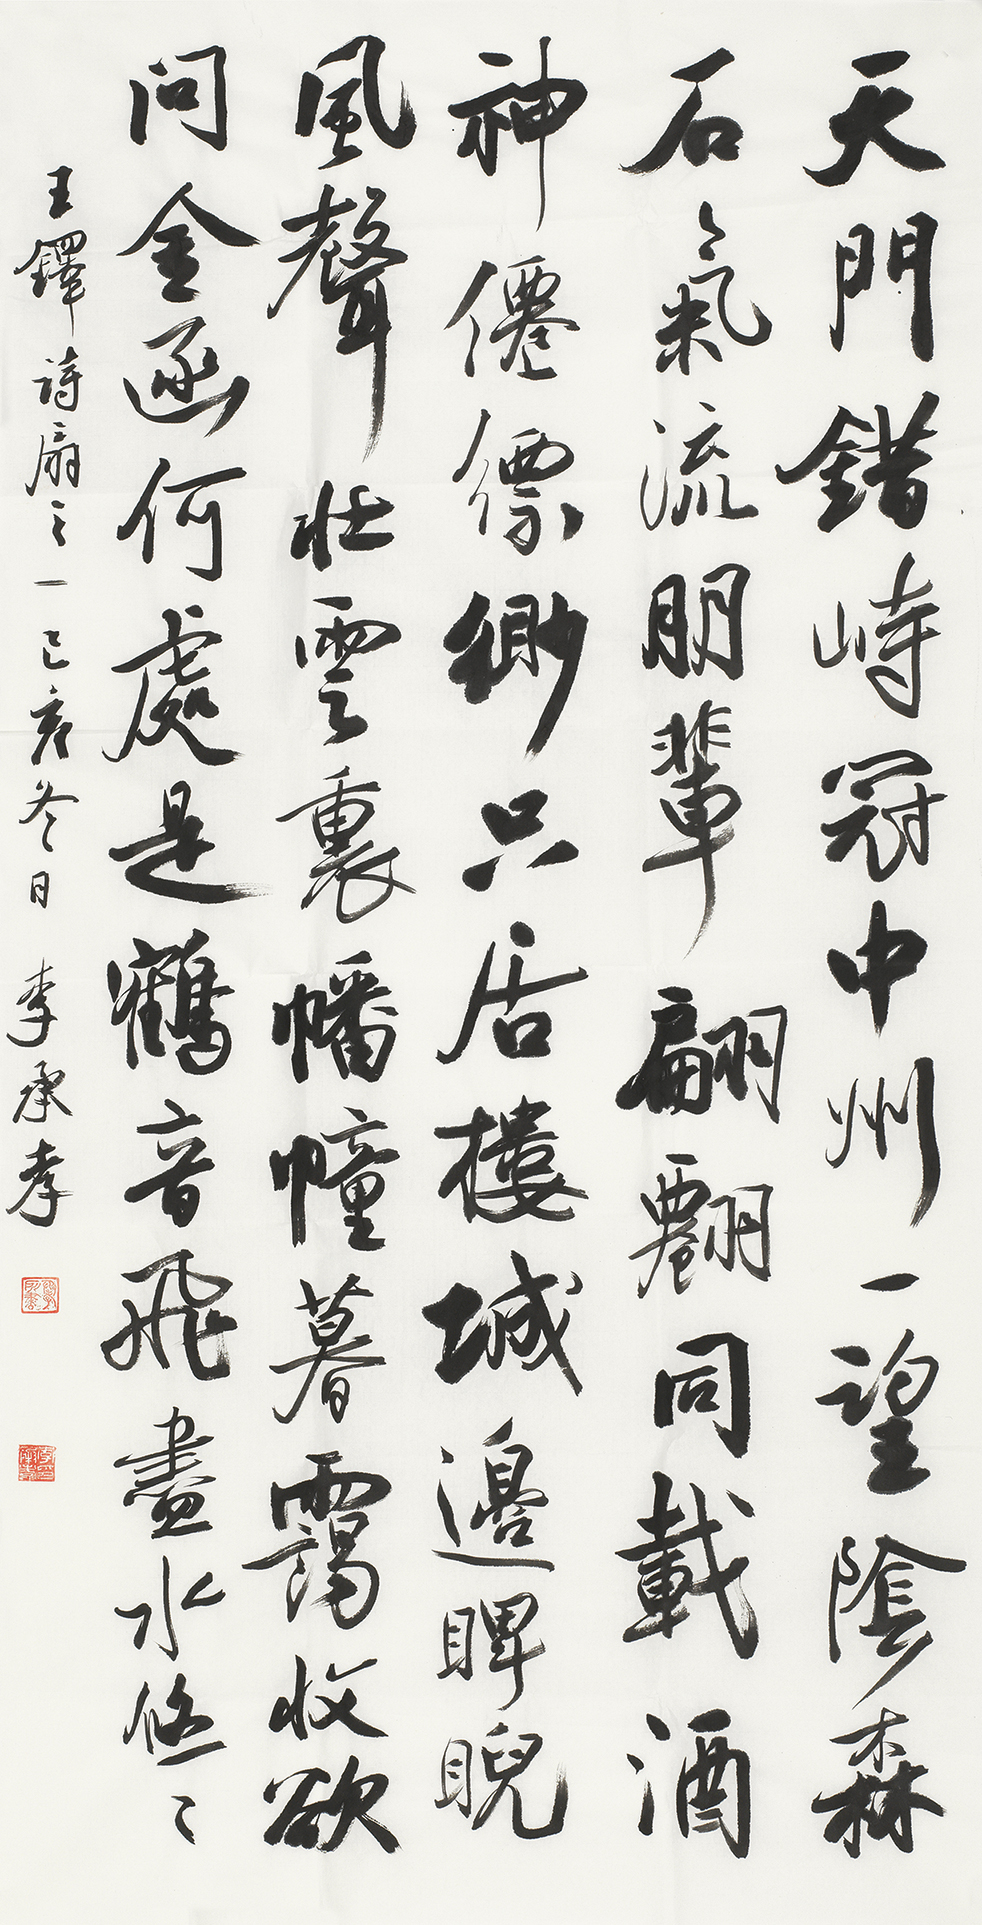 天門錯峙冠中州一望陰森
石氣流朋輩翩翾同載酒
神僊僄緲只居樓城邊睥睨
風聲壯雲裏幡幢暮靄收欲
問金函何處是鶴音飛盡水悠〻
王鐸詩扇之一己亥冬日李承孝